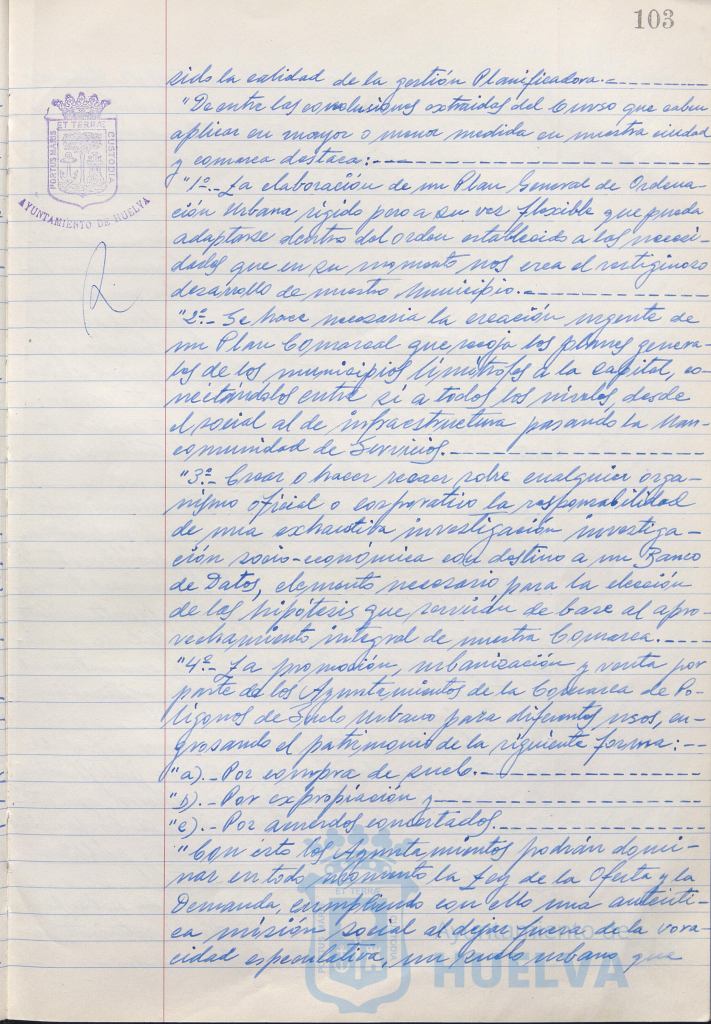 103
sido la calidad de la gestión Planificadora.-
"De entre las conclusiones extraidas del Curso que caben
aplicar en mayor o menor medida en nuestra ciudad
y comarca destaca:
"1º.- La elaboración de un Plan General de Ordena-
ción Urbana rígido pero a su vez flexible que pueda
adaptarse dentro del orden establecido a las necesi-
dades que en su momento nos crea el vertiginoso
desarollo de nuestro Municipio.-
"2º.- Se hace necesaria la creación urgente de
un Plan Comarcal que recoja los planes genera-
les de los municipios limítrofes a la capital, co-
nectándolos entre sí a todos los niveles, desde
el social al de infraestructura pasando la Man-
comunidad de Servicios.-
"3º.- Crear o hacer recaer sobre cualquier orga-
nismo oficial o corporativo la responsabilidad
de una exhaustiva investigación investiga-
ción socio-económica con destino a un Banco
de Datos, elemento necesario para la elección
de las hipótesis que servirán de base al apro-
vechamiento integral de nuestra Comarca.-
"4º.- La promoción, urbanización y venta por
parte de los Ayuntamientos de la Comarca de Po-
lígonos de Suelo Urbano para diferentes usos, en-
grosando el patrimonio de la siguiente forma:-
"a).- Por compra de suelo.-
"b).- Por expropiación y
"c).- Por acuerdos concertados.
"Con ésto los Ayuntamientos podrán domi-
nar en todo momento la Ley de la Oferta y la
Demanda, cumpliendo con ello una auténti-
ca misión social al dejar fuera de la vora-
cidad especulativa, un suelo urbano que
PORTUS MARIS ET TERRAE CUSTODIA
AYUNTAMIENTO DE HUELVA
Ayuntamiento de
HUELVA